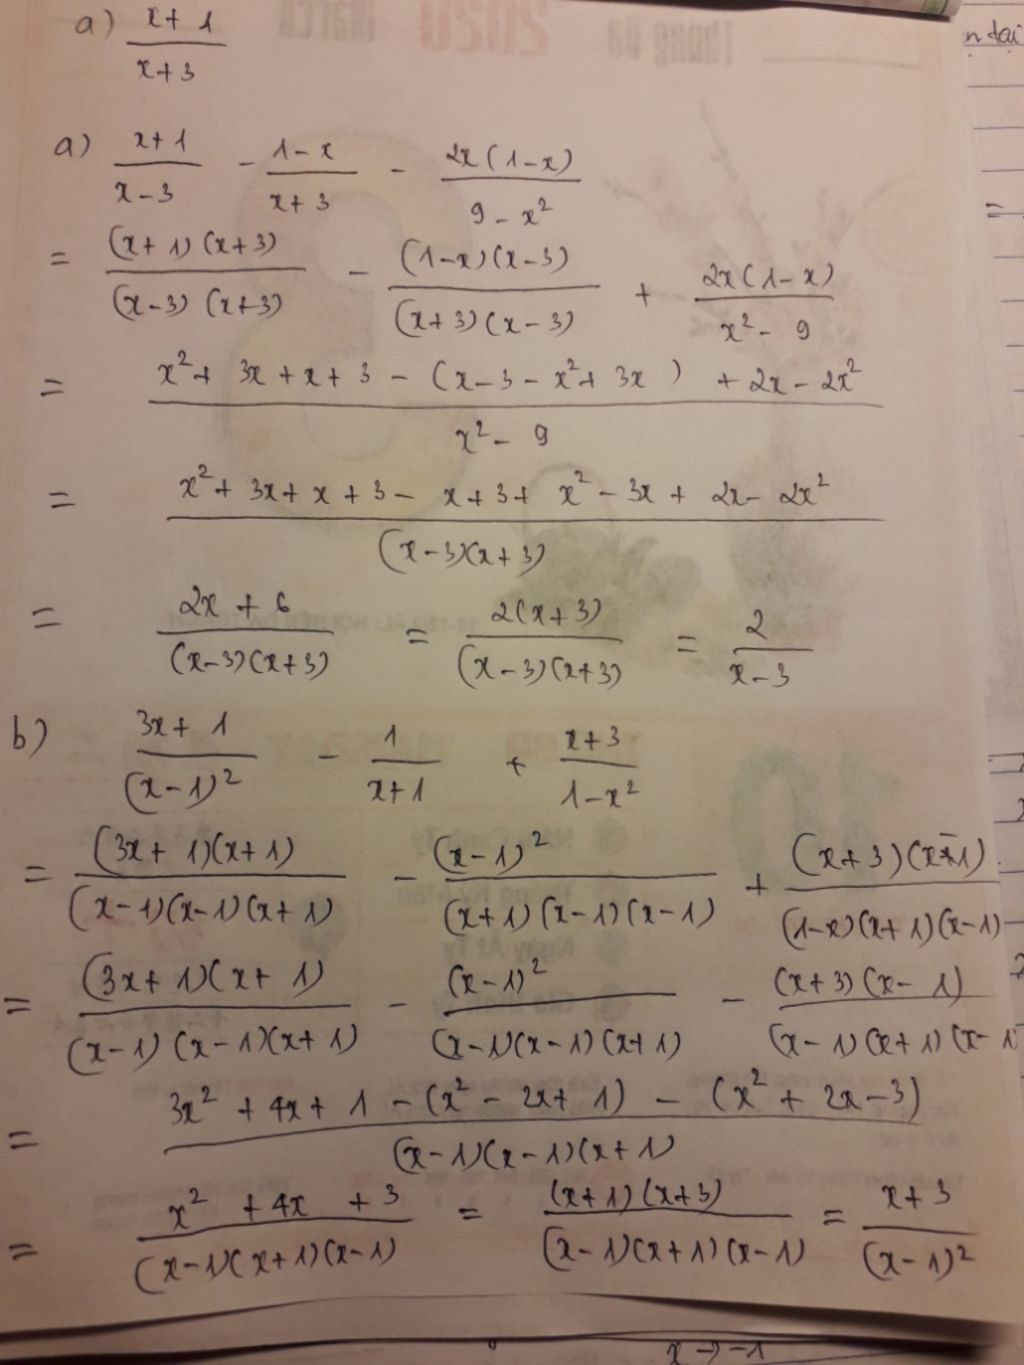 a) (x+1)/(x+3)
a) (x+1)/(x-3) - (1-x)/(x+3) - 2x(1-x)/(9-x²)
= (x+1)(x+3)/(x-3)(x+3) - (1-x)(x-3)/(x+3)(x-3) + 2x(1-x)/(x²-9)
= (x²+3x+x+3-(x-3-x²+3x)+2x-2x²)/(x²-9)
= (x²+3x+x+3-x+3+x²-3x+2x-2x²)/(x-3)(x+3)
= (2x+6)/(x-3)(x+3) = 2(x+3)/(x-3)(x+3) = 2/(x-3)
b) (3x+1)/(x-1)² - 1/(x+1) + (x+3)/(1-x²)
= (3x+1)(x+1)/(x-1)(x-1)(x+1) - (x-1)²/(x+1)(x-1)(x-1) + (x+3)(x-1)/(1-x)(x+1)(x-1)
= (3x+1)(x+1)/(x-1)(x-1)(x+1) - (x-1)²/(x-1)(x-1)(x+1) - (x+3)(x-1)/(x-1)(x+1)(x-1)
= (3x²+4x+1-(x²-2x+1)-(x²+2x-3))/(x-1)(x-1)(x+1)
= (x²+4x+3)/(x-1)(x+1)(x-1) = (x+1)(x+3)/(x-1)(x+1)(x-1) = (x+3)/(x-1)²
x→-1